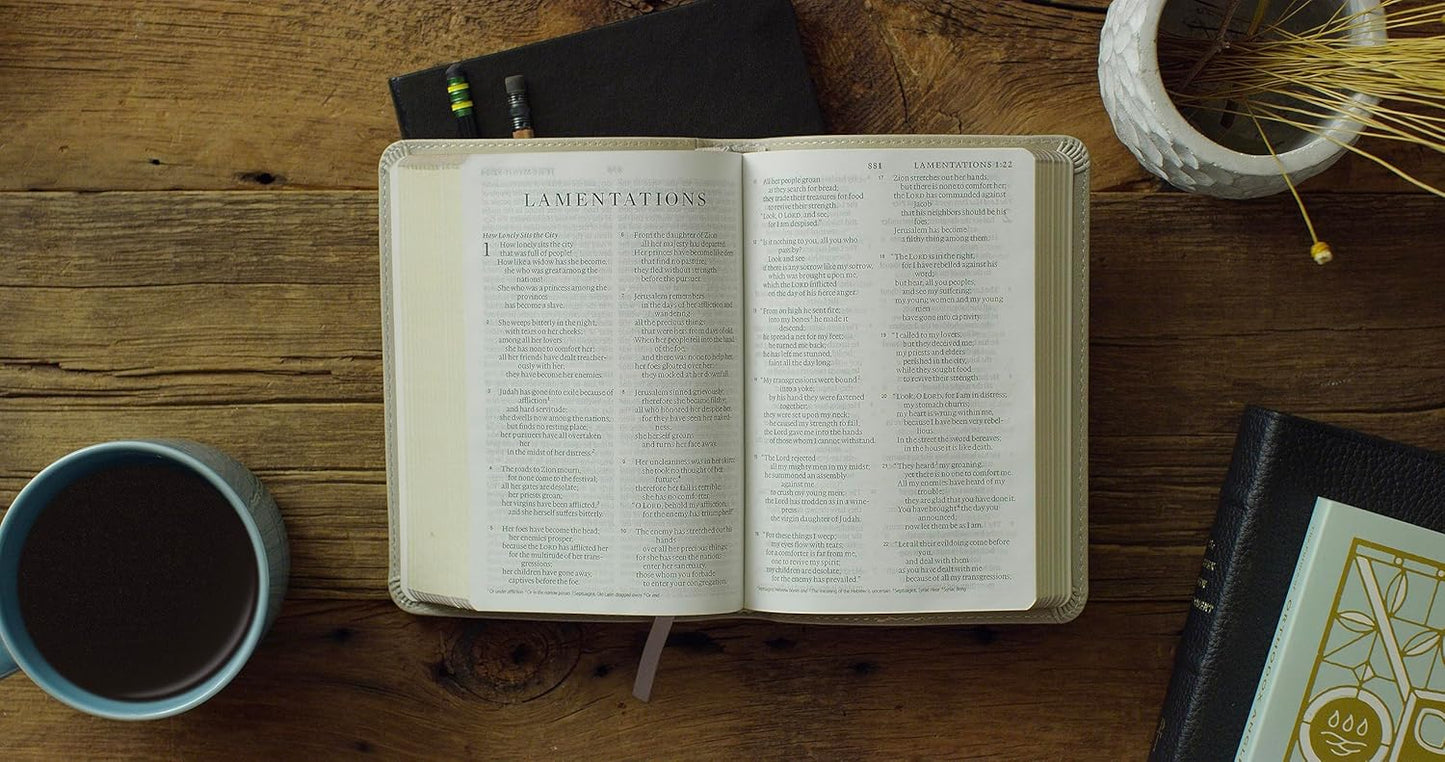 LAMENTATIONS
How Lonely Sits the City
1 How lonely sits the city
that was full of people!
How like a widow has she become,
she who was great among the
nations!
She who was a princess among the
provinces
has become a slave.
2 She weeps bitterly in the night,
with tears on her cheeks;
among all her lovers
she has none to comfort her;
all her friends have dealt treacher-
ously with her;
they have become her enemies.
3 Judah has gone into exile because of
affliction¹
and hard servitude;
she dwells now among the nations,
but finds no resting place;
her pursuers have all overtaken
her
in the midst of her distress.²
4 The roads to Zion mourn,
for none come to the festival;
all her gates are desolate;
her priests groan;
her virgins have been afflicted,³
and she herself suffers bitterly.
5 Her foes have become the head;
her enemies prosper,
because the LORD has afflicted her
for the multitude of her trans-
gressions;
her children have gone away,
captives before the foe.
6 From the daughter of Zion
all her majesty has departed.
Her princes have become like deer
that find no pasture;
they fled without strength
before the pursuer.
7 Jerusalem remembers
in the days of her affliction and
wandering
all the precious things
that were hers from days of old.
When her people fell into the hand
of the foe,
and there was none to help her,
her foes gloated over her;
they mocked at her downfall.
8 Jerusalem sinned grievously;
therefore she became filthy;
all who honored her despise her,
for they have seen her naked-
ness;
she herself groans
and turns her face away.
9 Her uncleanness was in her skirts;
she took no thought of her
future;⁴
therefore her fall is terrible;
she has no comforter.
"O LORD, behold my affliction,
for the enemy has triumphed!"
10 The enemy has stretched out his
hands
over all her precious things;
for she has seen the nations
enter her sanctuary,
those whom you forbade
to enter your congregation.
881 LAMENTATIONS 1:22
11 All her people groan
as they search for bread;
they trade their treasures for food
to revive their strength.
"Look, O LORD, and see,
for I am despised."
12 "Is it nothing to you, all you who
pass by?
Look and see
if there is any sorrow like my sorrow,
which was brought upon me,
which the LORD inflicted
on the day of his fierce anger.
13 "From on high he sent fire;
into my bones¹ he made it
descend;
he spread a net for my feet;
he turned me back;
he has left me stunned,
faint all the day long.
14 "My transgressions were bound²
into a yoke;
by his hand they were fastened
together;
they were set upon my neck;
he caused my strength to fail;
the Lord gave me into the hands
of those whom I cannot withstand.
15 "The Lord rejected
all my mighty men in my midst;
he summoned an assembly
against me
to crush my young men;
the Lord has trodden as in a wine-
press
the virgin daughter of Judah.
16 "For these things I weep;
my eyes flow with tears;
for a comforter is far from me,
one to revive my spirit;
my children are desolate,
for the enemy has prevailed."
17 Zion stretches out her hands,
but there is none to comfort her;
the LORD has commanded against
Jacob
that his neighbors should be his
foes;
Jerusalem has become
a filthy thing among them.
18 "The LORD is in the right,
for I have rebelled against his
word;
but hear, all you peoples,
and see my suffering;
my young women and my young
men
have gone into captivity.
19 "I called to my lovers,
but they deceived me;
my priests and elders
perished in the city,
while they sought food
to revive their strength.
20 "Look, O LORD, for I am in distress;
my stomach churns;
my heart is wrung within me,
because I have been very rebel-
lious.
In the street the sword bereaves;
in the house it is like death.
21 "They heard³ my groaning,
yet there is no one to comfort me.
All my enemies have heard of my
trouble;
they are glad that you have done it.
You have brought⁴ the day you
announced;
now let them be as I am.
22 "Let all their evildoing come before
you,
and deal with them
as you have dealt with me
because of all my transgressions;